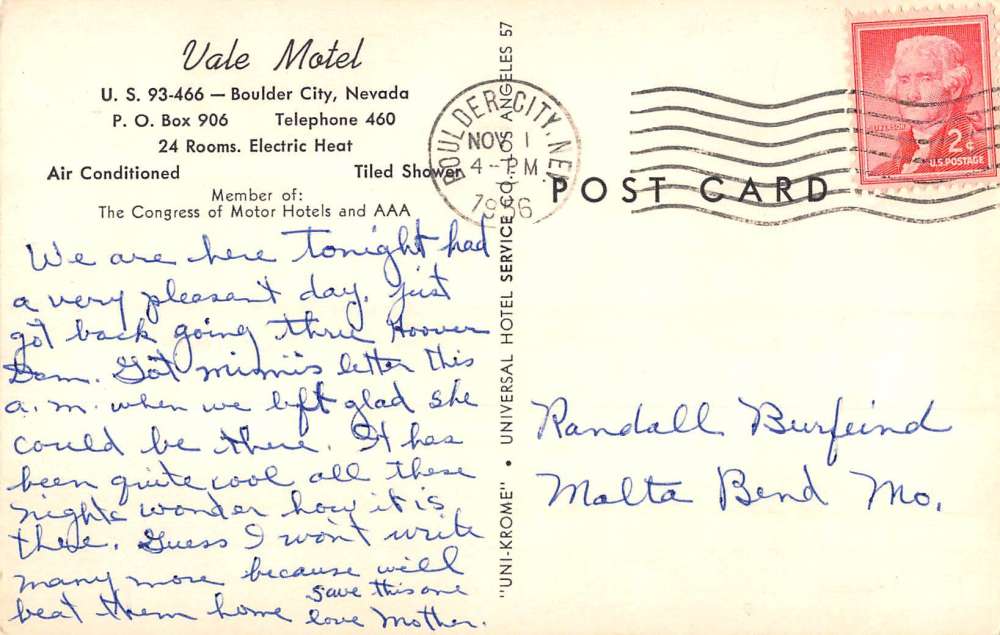 Vale Motel
U. S. 93-466 — Boulder City, Nevada
P. O. Box 906 Telephone 460
24 Rooms. Electric Heat
Air Conditioned Tiled Shower
Member of:
The Congress of Motor Hotels and AAA
We are here tonight had
a very pleasant day, just
got back going thru Hoover
Dam. Got Mimi's letter this
a.m. when we left glad she
could be there. It has
been quite cool all these
nights wonder how it is
there. Guess I won't write
many more because will
beat them home save this one
love Mother.
"UNI-KROME" • UNIVERSAL HOTEL SERVICE CO., LOS ANGELES 57
BOULDER CITY, NEV.
NOV 1
4 - PM
1956
POST CARD
JEFFERSON
2¢
U.S. POSTAGE
Randall Burfeind
Malta Bend Mo.